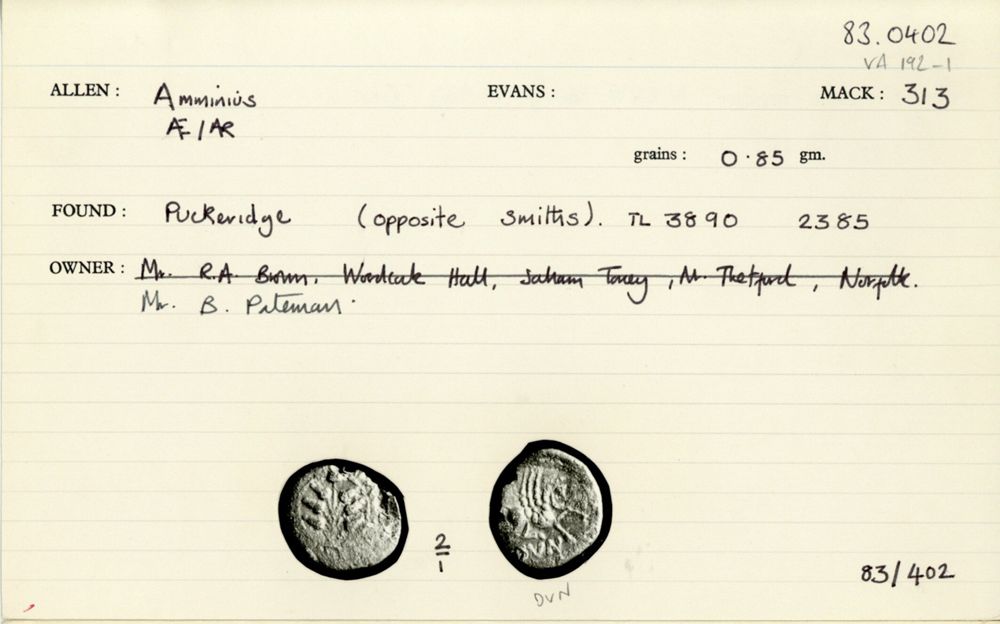 83.0402
VA 192-1
ALLEN : Amminius EVANS : MACK : 313
Æ/AR
grains : 0.85 gm.
FOUND : Puckeridge (opposite smiths). TL 3890 2385
OWNER : Mr. R.A. Brown, Woodcock Hall, Saham Toney, Nr. Thetford, Norfolk.
Mr. B. Pateman.
DVN
2
1
DVN
83/402